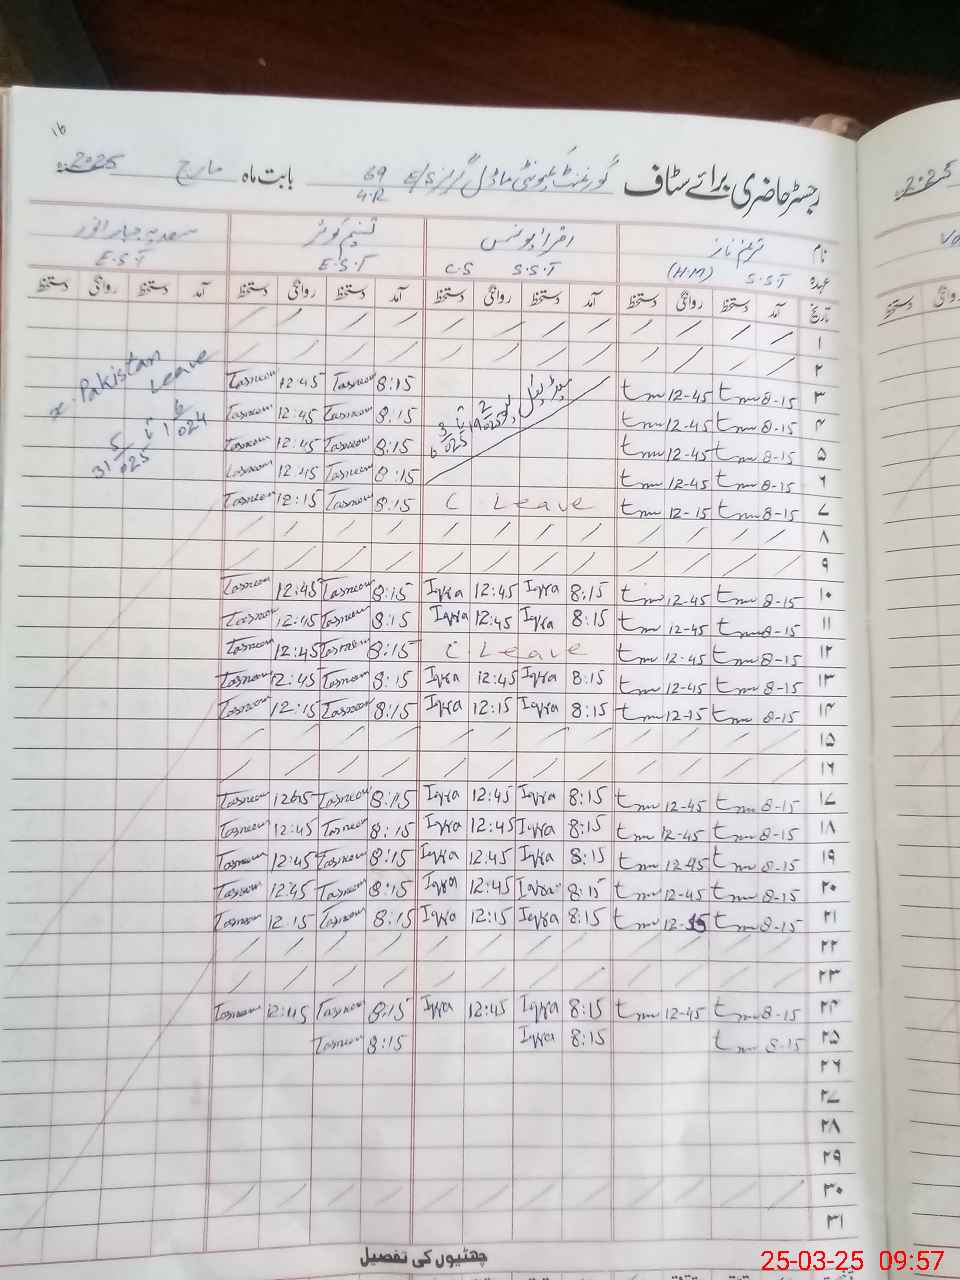 ۱۶
رجسٹر حاضری برائے سٹاف گورنمنٹ کمیونٹی ماڈل گرلز E/S 69 4-R بابت ماہ مارچ 2025
نام ترنم ناز اقراء یونس تسنیم کوثر سعدیہ جبار انور
عہدہ S.S.T (H.M) S.S.T C.S E.S.T E.S.T
تاریخ آمد دستخط روانگی دستخط آمد دستخط روانگی دستخط آمد دستخط روانگی دستخط آمد دستخط روانگی دستخط
۱ / / / / / / / / / / / /
۲ / / / / / / / / / / / /
x. Pakistan Leave
31 5/025 تا 1 6/024
میڈیکل لیو
19 2/025 تا 6 3/025
۳ 8-15 tm 12-45 tm 8:15 Tasneem 12:45 Tasneem
۴ 8-15 tm 12-45 tm 8:15 Tasneem 12:45 Tasneem
۵ 8-15 tm 12-45 tm 8:15 Tasneem 12:45 Tasneem
۶ 8-15 tm 12-45 tm 8:15 Tasneem 12:45 Tasneem
۷ 8-15 tm 12-15 tm C Leave 8:15 Tasneem 12:15 Tasneem
۸ / / / / / / / / / / / /
۹ / / / / / / / / / / / /
۱۰ 8-15 tm 12-45 tm 8:15 Iqra 12:45 Iqra 8:15 Tasneem 12:45 Tasneem
۱۱ 8-15 tm 12-45 tm 8:15 Iqra 12:45 Iqra 8:15 Tasneem 12:45 Tasneem
۱۲ 8-15 tm 12-45 tm C Leave 8:15 Tasneem 12:45 Tasneem
۱۳ 8-15 tm 12-45 tm 8:15 Iqra 12:45 Iqra 8:15 Tasneem 12:45 Tasneem
۱۴ 8-15 tm 12-15 tm 8:15 Iqra 12:15 Iqra 8:15 Tasneem 12:15 Tasneem
۱۵ / / / / / / / / / / / /
۱۶ / / / / / / / / / / / /
۱۷ 8-15 tm 12-45 tm 8:15 Iqra 12:45 Iqra 8:15 Tasneem Tasneem
۱۸ 8-15 tm 12-45 tm 8:15 Iqra 12:45 Iqra 8:15 Tasneem 12:45 Tasneem
۱۹ 8-15 tm 12-45 tm 8:15 Iqra 12:45 Iqra 8:15 Tasneem 12:45 Tasneem
۲۰ 8-15 tm 12-45 tm 8:15 Iqra 12:45 Iqra 8:15 Tasneem 12:45 Tasneem
۲۱ 8-15 tm 12-15 tm 8:15 Iqra 12:15 Iqra 8:15 Tasneem 12:15 Tasneem
۲۲ / / / / / / / / / / / /
۲۳ / / / / / / / / / / / /
۲۴ 8-15 tm 12-45 tm 8:15 Iqra 12:45 Iqra 8:15 Tasneem 12:45 Tasneem
۲۵ 8-15 tm 8:15 Iqra 8:15 Tasneem
۲۶
۲۷
۲۸
۲۹
۳۰ / / / / / / / / / / / /
۳۱
چھٹیوں کی تفصیل
2025
روانگی دستخط
25-03-25 09:57